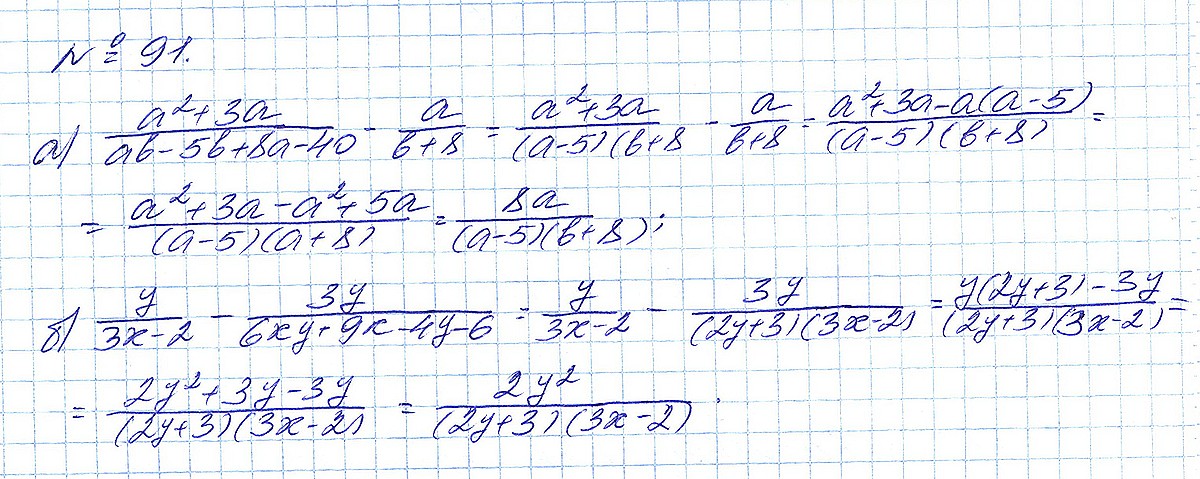 № 91.
а) (a²+3a)/(ab-5b+8a-40) - a/(b+8) = (a²+3a)/((a-5)(b+8) - a/(b+8) = (a²+3a-a(a-5))/((a-5)(b+8)) =
= (a²+3a-a²+5a)/((a-5)(a+8)) = 8a/((a-5)(b+8));
б) y/(3x-2) - 3y/(6xy+9x-4y-6) = y/(3x-2) - 3y/((2y+3)(3x-2)) = (y(2y+3)-3y)/((2y+3)(3x-2)) =
= (2y²+3y-3y)/((2y+3)(3x-2)) = 2y²/((2y+3)(3x-2)).